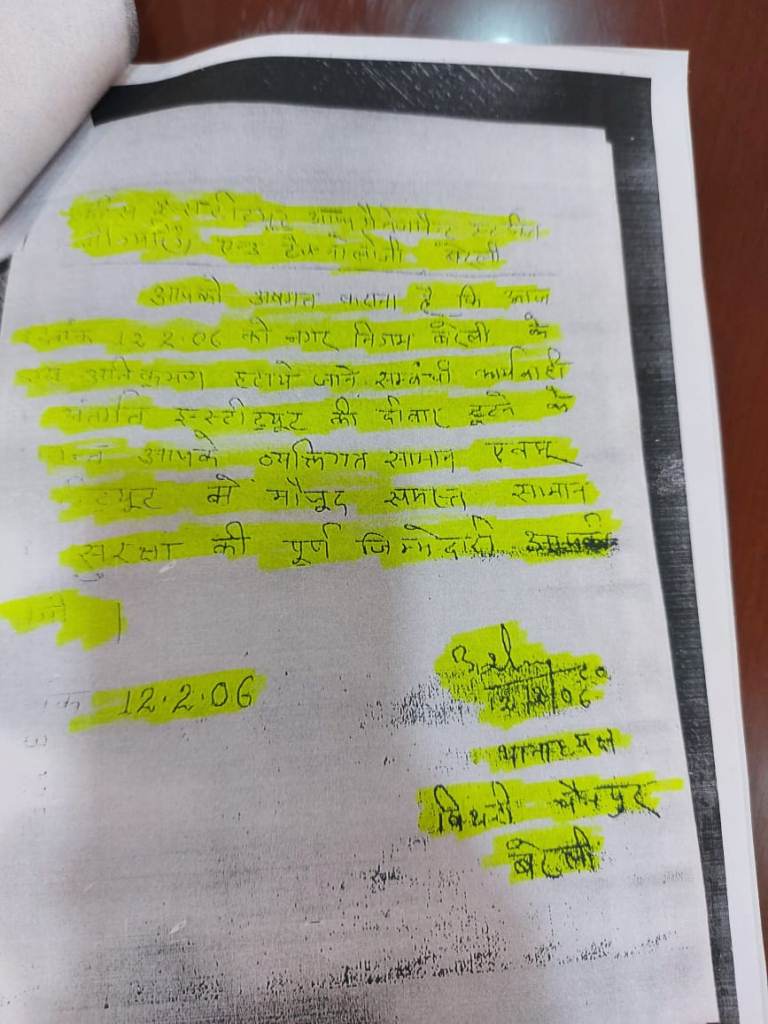 ऑफ मैनेजमेन्ट
एन्ड टैक्नोलोजी बरेली
आपको अवगत कराना है कि आज
दिनांक 12.2.06 को नगर निगम बरेली के
अतिक्रमण हटाये जाने सम्बंधी कार्यवाही
अंतर्गत इन्स्टीट्यूट की दीवार टूटने के
आपके व्यक्तिगत सामान एवम्
में मौजूद समस्त सामान
सुरक्षा की पूर्ण जिम्मेदारी आपकी
12.2.06
12/2/06
थानाध्यक्ष
बिथरी चैनपुर
बरेली